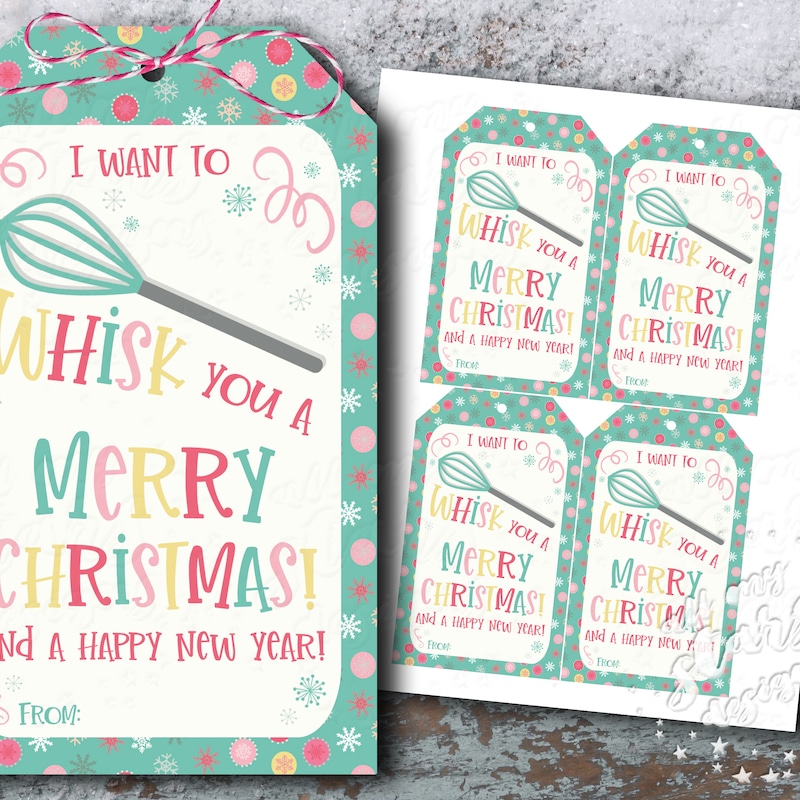 I WANT TO
WHiSK YOU A
MERRY
CHRiSTMAS!
AND A HAPPY NEW YEAR!
FROM:
I WANT TO
WHiSK YOU A
MERRY
CHRiSTMAS!
AND A HAPPY NEW YEAR!
FROM:
I WANT TO
WHiSK YOU A
MERRY
CHRiSTMAS!
AND A HAPPY NEW YEAR!
FROM:
I WANT TO
WHiSK YOU A
MERRY
CHRiSTMAS!
AND A HAPPY NEW YEAR!
FROM:
I WANT TO
WHiSK YOU A
MERRY
CHRiSTMAS!
AND A HAPPY NEW YEAR!
FROM:
oh my
stars
design